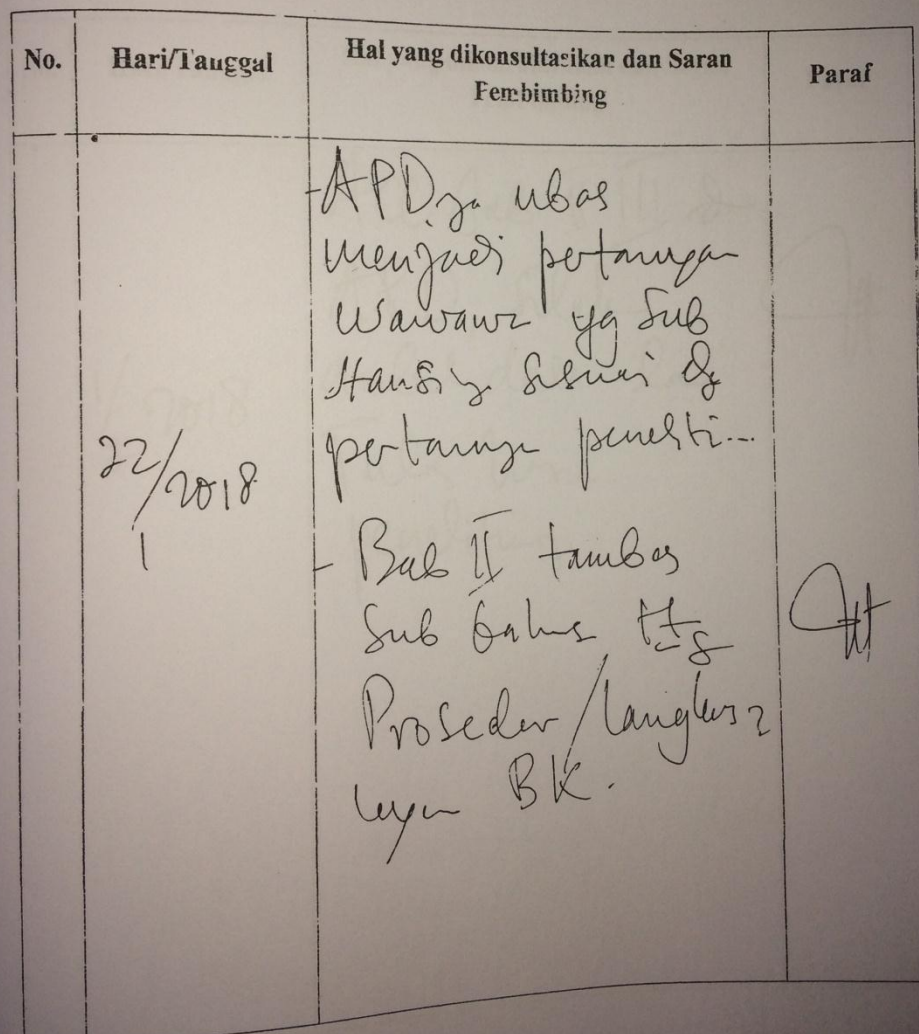 No.
Hari/Tanggal
Hal yang dikonsultasikan dan Saran
Pembimbing
Paraf
- APDnya ubah
menjadi pertanyaan
wawancr yg Sub
sesuai dg
pertanya peneliti...
22/1 2018
- Bab II tambah
Sub bahas ttg
Prosedur/langkah2
layan BK.